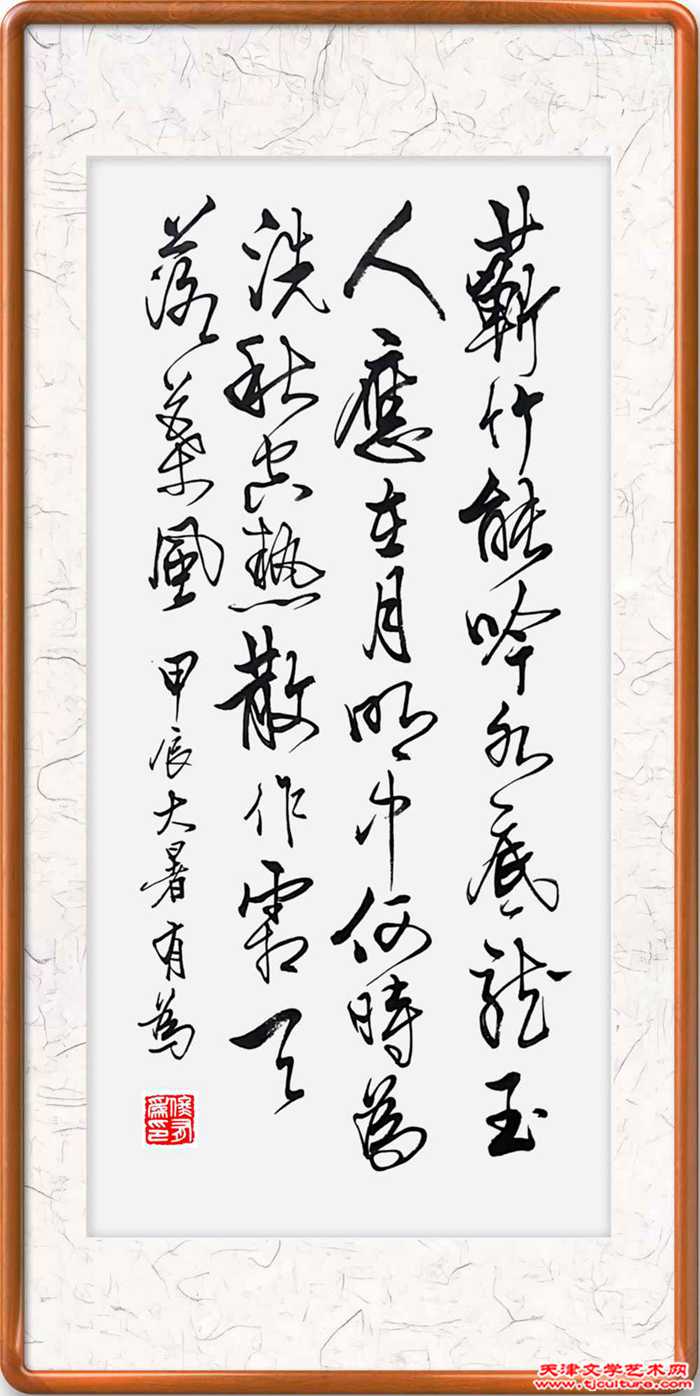 蘄竹能吟水底龍玉
人應在月明中何時為
洗秋空熱散作霜天
落葉風
甲辰大暑有為
天津文学艺术网
www.tjculture.com